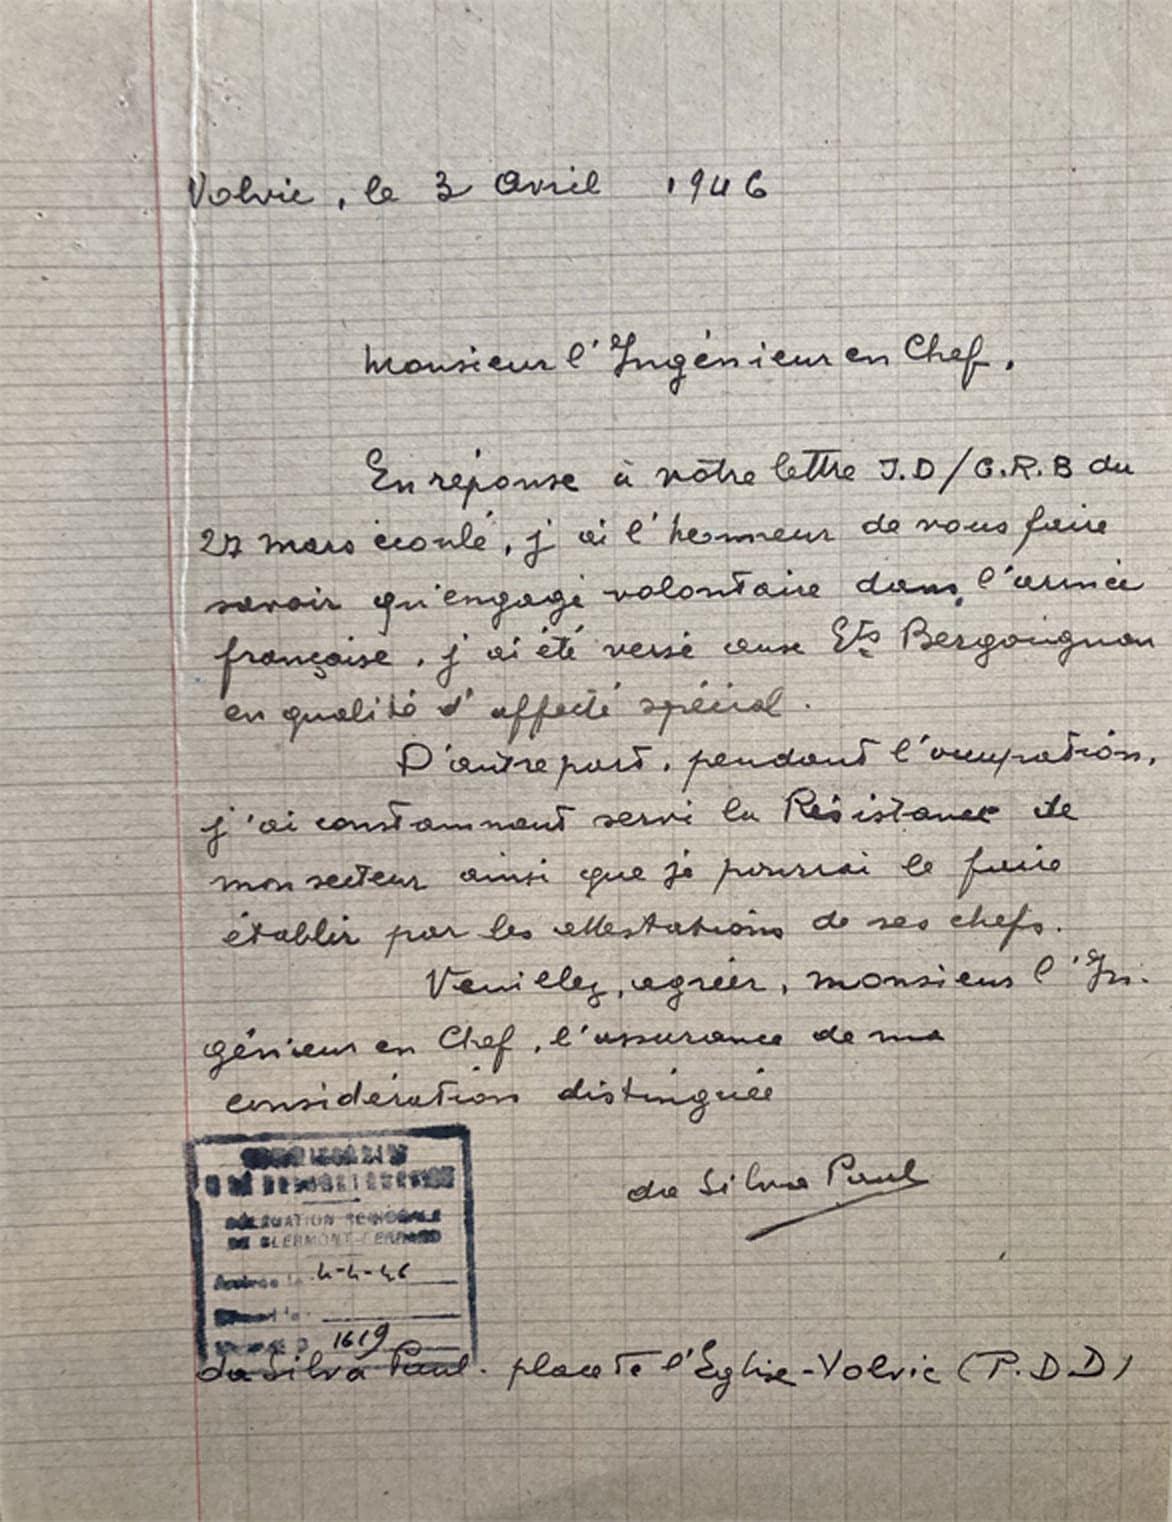 Volvic, le 3 Avril 1946
Monsieur l'Ingénieur en Chef,
En réponse à vôtre lettre J.D/C.R.B du
27 mars écoulé, j'ai l'honneur de vous faire
savoir qu'engagé volontaire dans l'armée
française, j'ai été versé aux Ets Bergougnan
en qualité d'affecté spécial.
D'autre part, pendant l'occupation,
j'ai constamment servi la Résistance de
mon secteur ainsi que je pourrai le faire
établir par les attestations de ses chefs.
Veuillez, agréer, monsieur l'In-
génieur en Chef, l'assurance de ma
considération distinguée
da Silva Paul
DÉLÉGATION RÉGIONALE
DE CLERMONT-FERRAND
Arrivée le 4-4-46
1619
da Silva Paul. place de l'Eglise-Volvic (P.D.D)